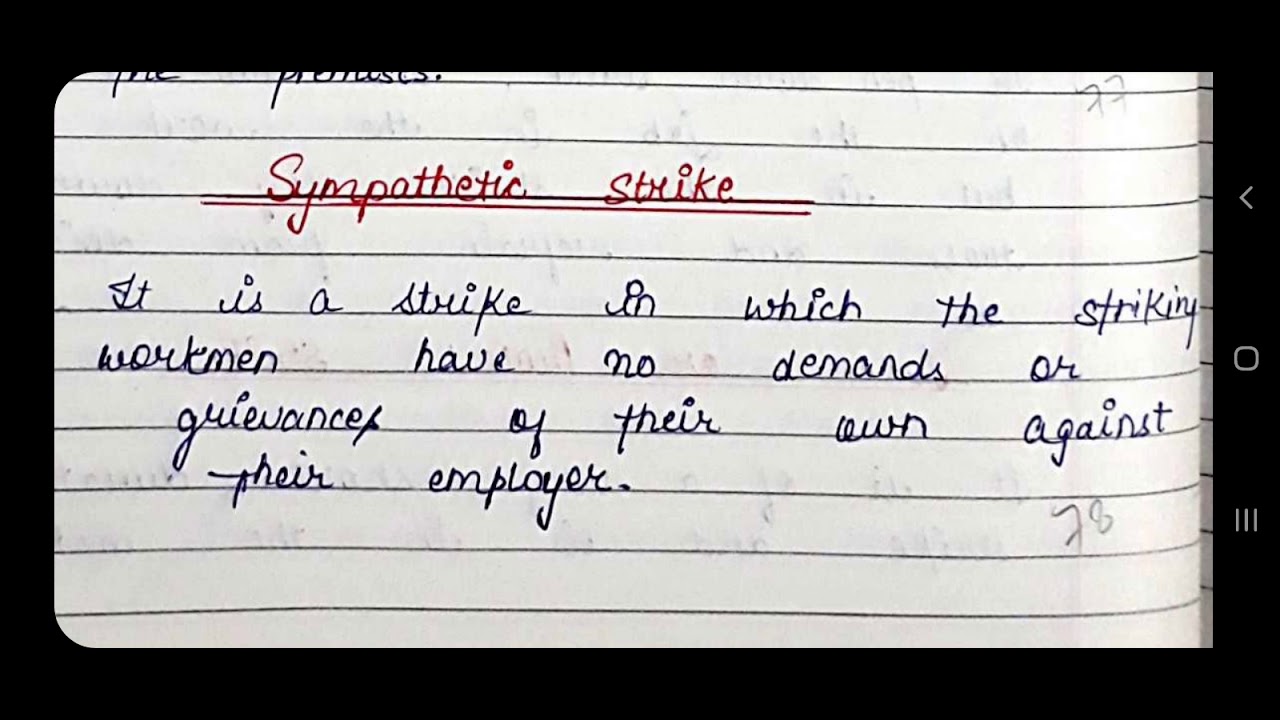 the premises.
77
Sympathetic strike
It is a strike in which the striking
workmen have no demands or
grievances of their own against
their employer.
78